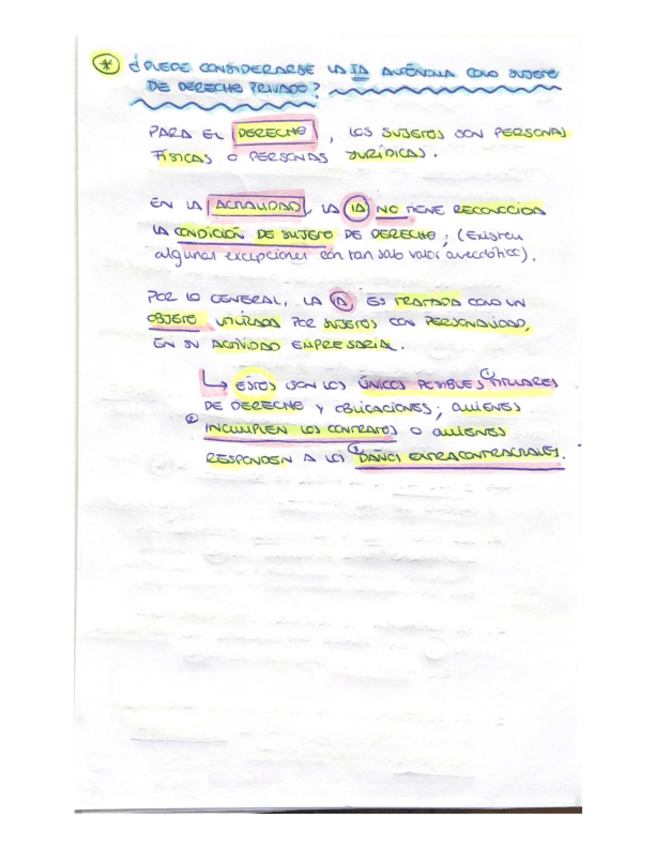 * ¿PUEDE CONSIDERARSE LA IA AUTÓNOMA COMO SUJETO
DE DERECHO PRIVADO?
PARA EL DERECHO, LOS SUJETOS SON PERSONAS
FÍSICAS O PERSONAS JURÍDICAS.
EN LA ACTUALIDAD, LA IA NO TIENE RECONOCIDA
LA CONDICIÓN DE SUJETO DE DERECHO; (Existen
algunas excepciones con tan solo valor anecdótico).
POR LO GENERAL, LA IA ES TRATADA COMO UN
OBJETO UTILIZADA POR SUJETOS CON PERSONALIDAD,
EN SU ACTIVIDAD EMPRESARIAL.
↳ ESTOS SON LOS ÚNICOS POSIBLES ① TITULARES
DE DERECHO Y OBLIGACIONES, QUIENES
② INCUMPLEN LOS CONTRATOS O QUIENES
RESPONDEN A LOS ③ DAÑOS EXTRACONTRACTUALES.